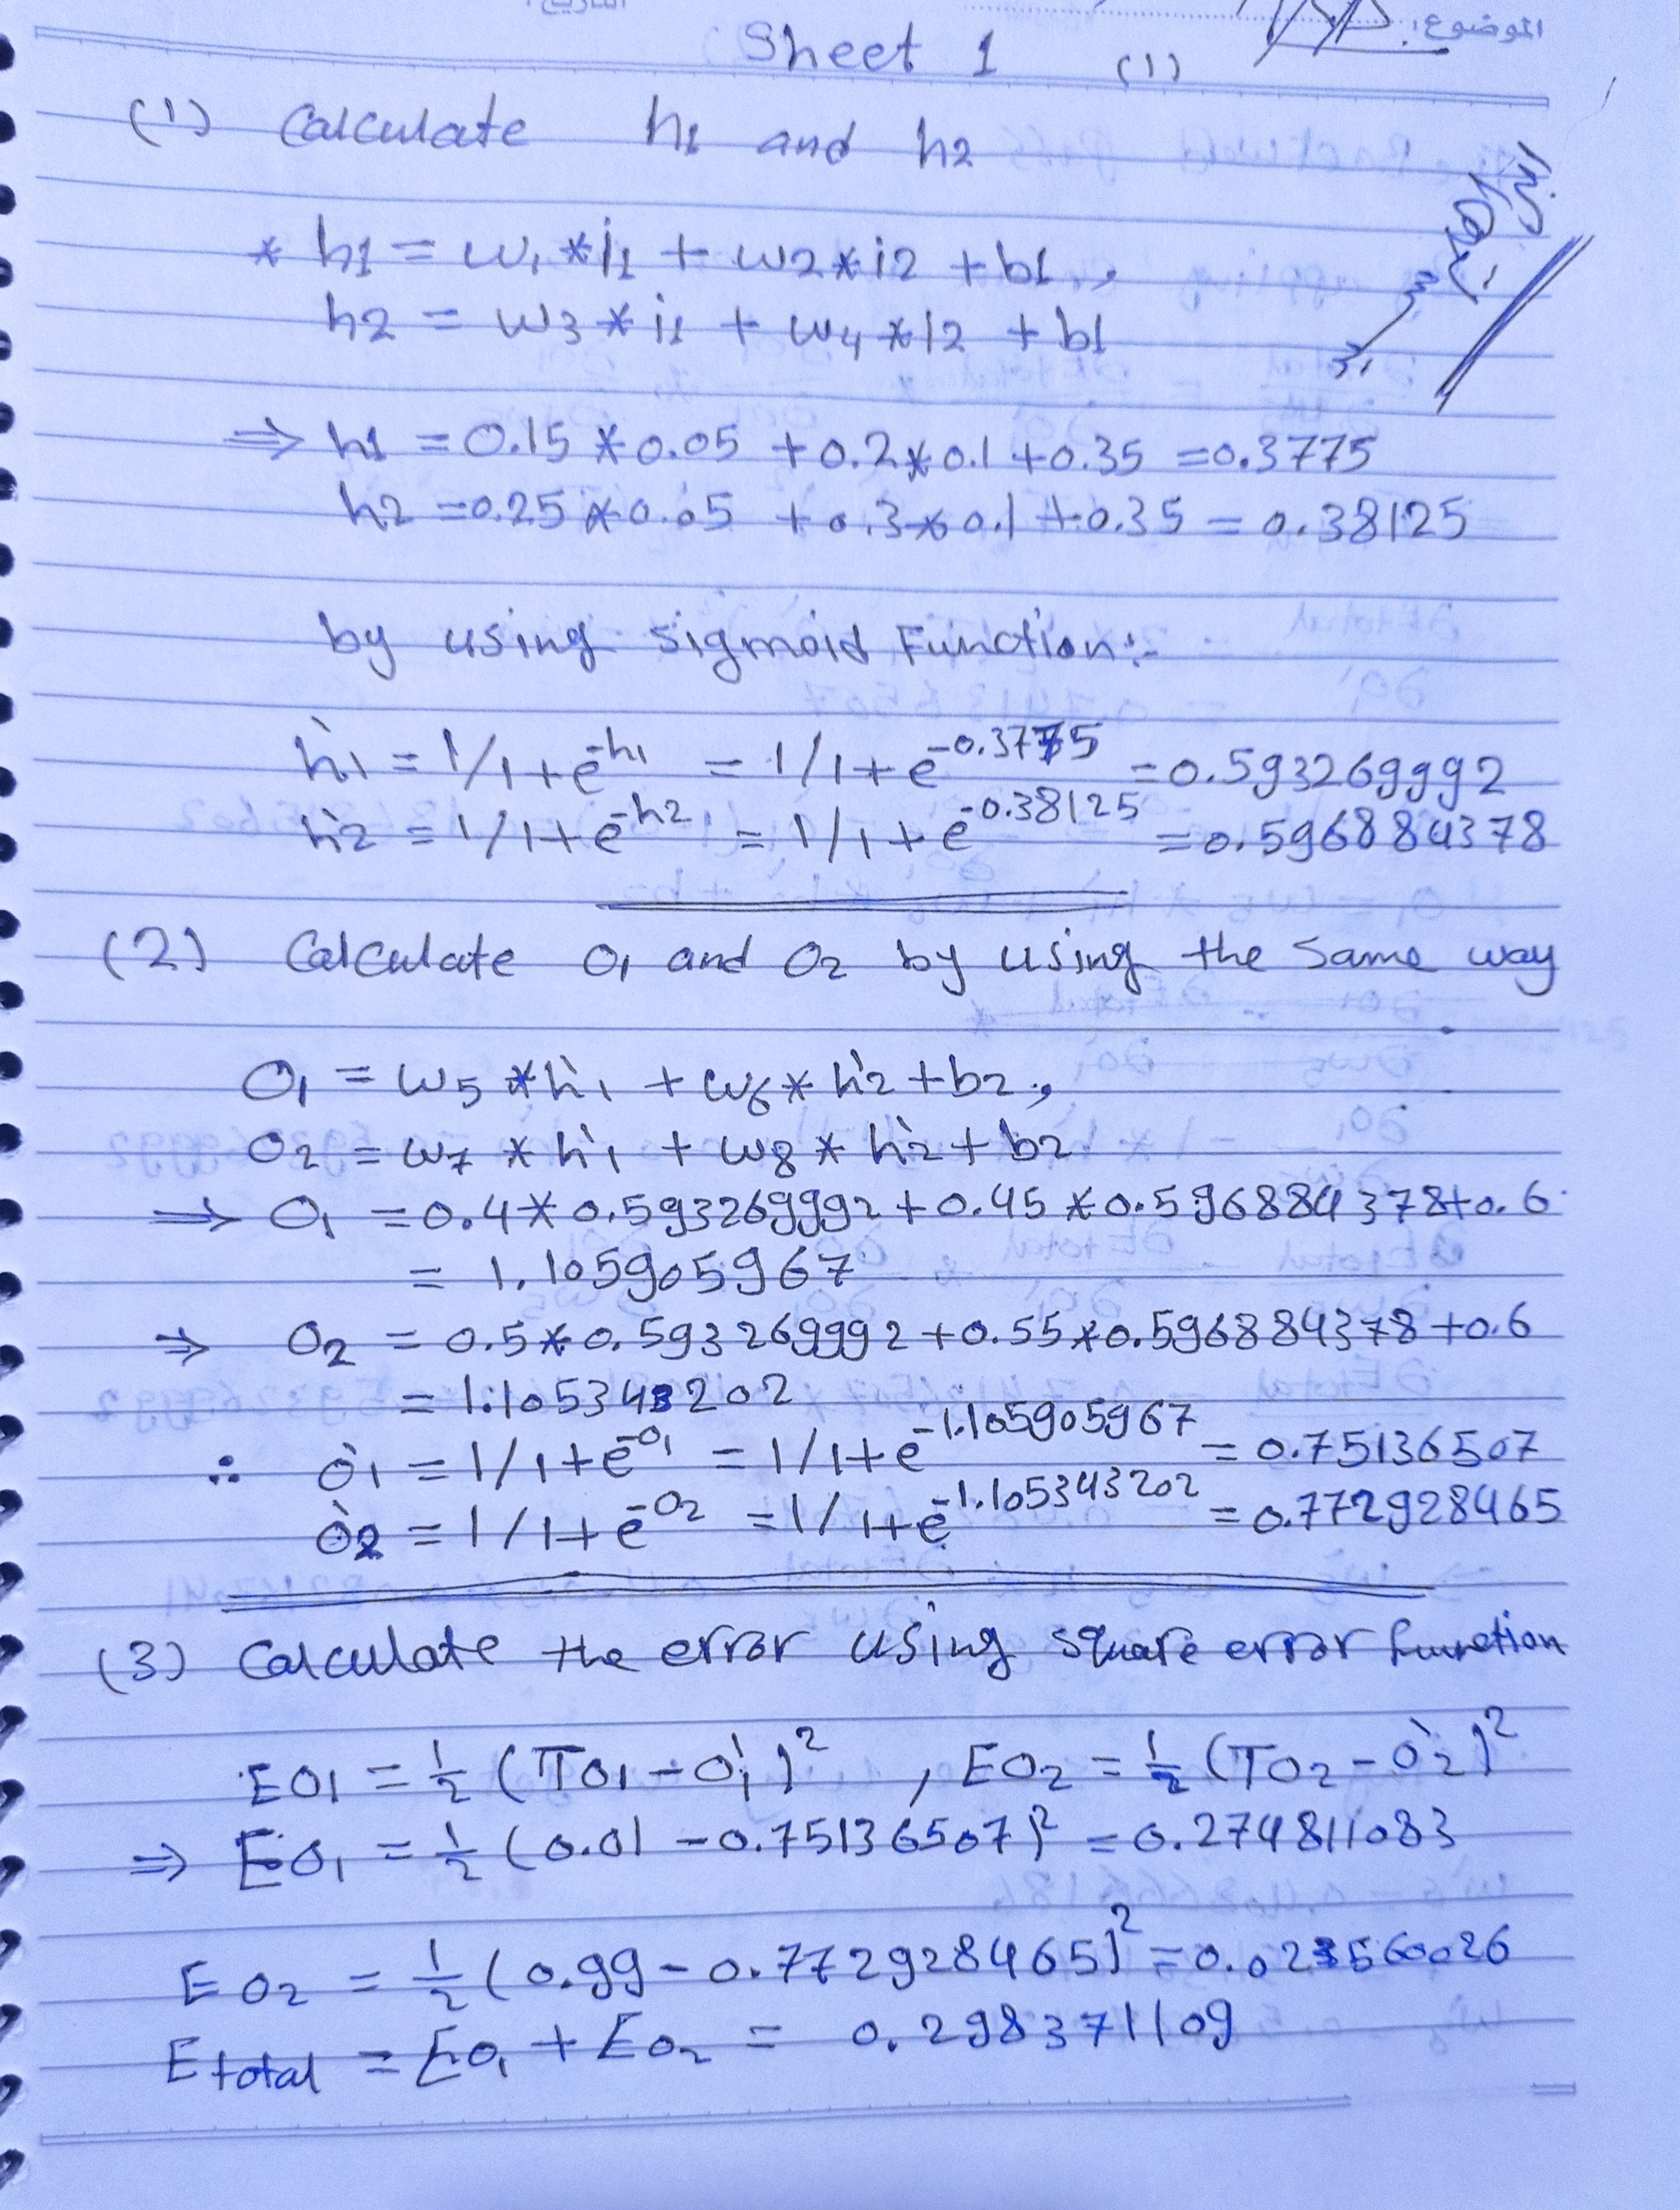 الموضوع:
Sheet 1 (1)
(1) Calculate h1 and h2
* h1 = w1 * i1 + w2 * i2 + b1,
h2 = w3 * i1 + w4 * i2 + b1
⇒ h1 = 0.15 * 0.05 + 0.2 * 0.1 + 0.35 = 0.3775
h2 = 0.25 * 0.05 + 0.3 * 0.1 + 0.35 = 0.38125
by using sigmoid Function:-
h̀1 = 1/1+e^-h1 = 1/1+e^-0.3775 = 0.593269992
h̀2 = 1/1+e^-h2 = 1/1+e^-0.38125 = 0.596884378
(2) Calculate O1 and O2 by using the same way
O1 = w5 * h̀1 + w6 * h̀2 + b2,
O2 = w7 * h̀1 + w8 * h̀2 + b2
⇒ O1 = 0.4 * 0.593269992 + 0.45 * 0.596884378 + 0.6
= 1.105905967
⇒ O2 = 0.5 * 0.593269992 + 0.55 * 0.596884378 + 0.6
= 1.105343202
∴ ò1 = 1/1+e^-O1 = 1/1+e^-1.105905967 = 0.75136507
ò2 = 1/1+e^-O2 = 1/1+e^-1.105343202 = 0.772928465
(3) Calculate the error using square error function
EO1 = 1/2 (TO1 - O̍1)², EO2 = 1/2 (TO2 - Ò2)²
⇒ EO1 = 1/2 (0.01 - 0.75136507)² = 0.274811083
EO2 = 1/2 (0.99 - 0.772928465)² = 0.023560026
E total = EO1 + EO2 = 0.298371109